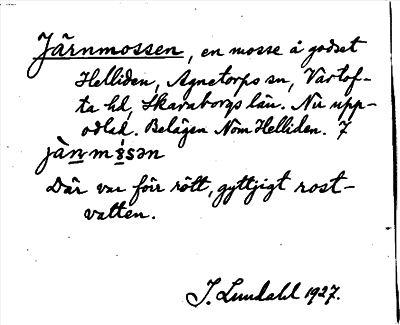 Järnmossen, en mosse å godset
Helliden, Agnetorps sn, Vartof-
ta hd, Skaraborgs län. Nu upp-
odlad. Belägen Nom Helliden. 7
jà̱nmȯsən
Där var förr rött, gyttjigt rost-
vatten.
J. Lundahl 1927.